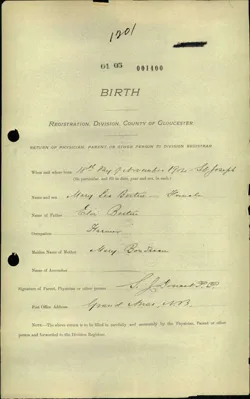 1201
01 05 001400
BIRTH
REGISTRATION, DIVISION, COUNTY OF GLOUCESTER.
RETURN OF PHYSICIAN, PARENT OR OTHER PERSON TO DIVISION REGISTRAR.
When and where born 10th Day of November 1902 St. Joseph
(Be particular, and fill in date, year and sex, in each.)
Name and sex Mary Lea Bertin - Female
Name of Father Elie Bertin
Occupation Farmer
Maiden Name of Mother Mary
Name of Accoucheur
Signature of Parent, Physician or other person, S. J. P.P.
Post Office Address, Grand Anse, N.B.
NOTE.—The above return is to be filled in carefully and accurately by the Physician, Parent or other
person and forwarded to the Division Registrar.